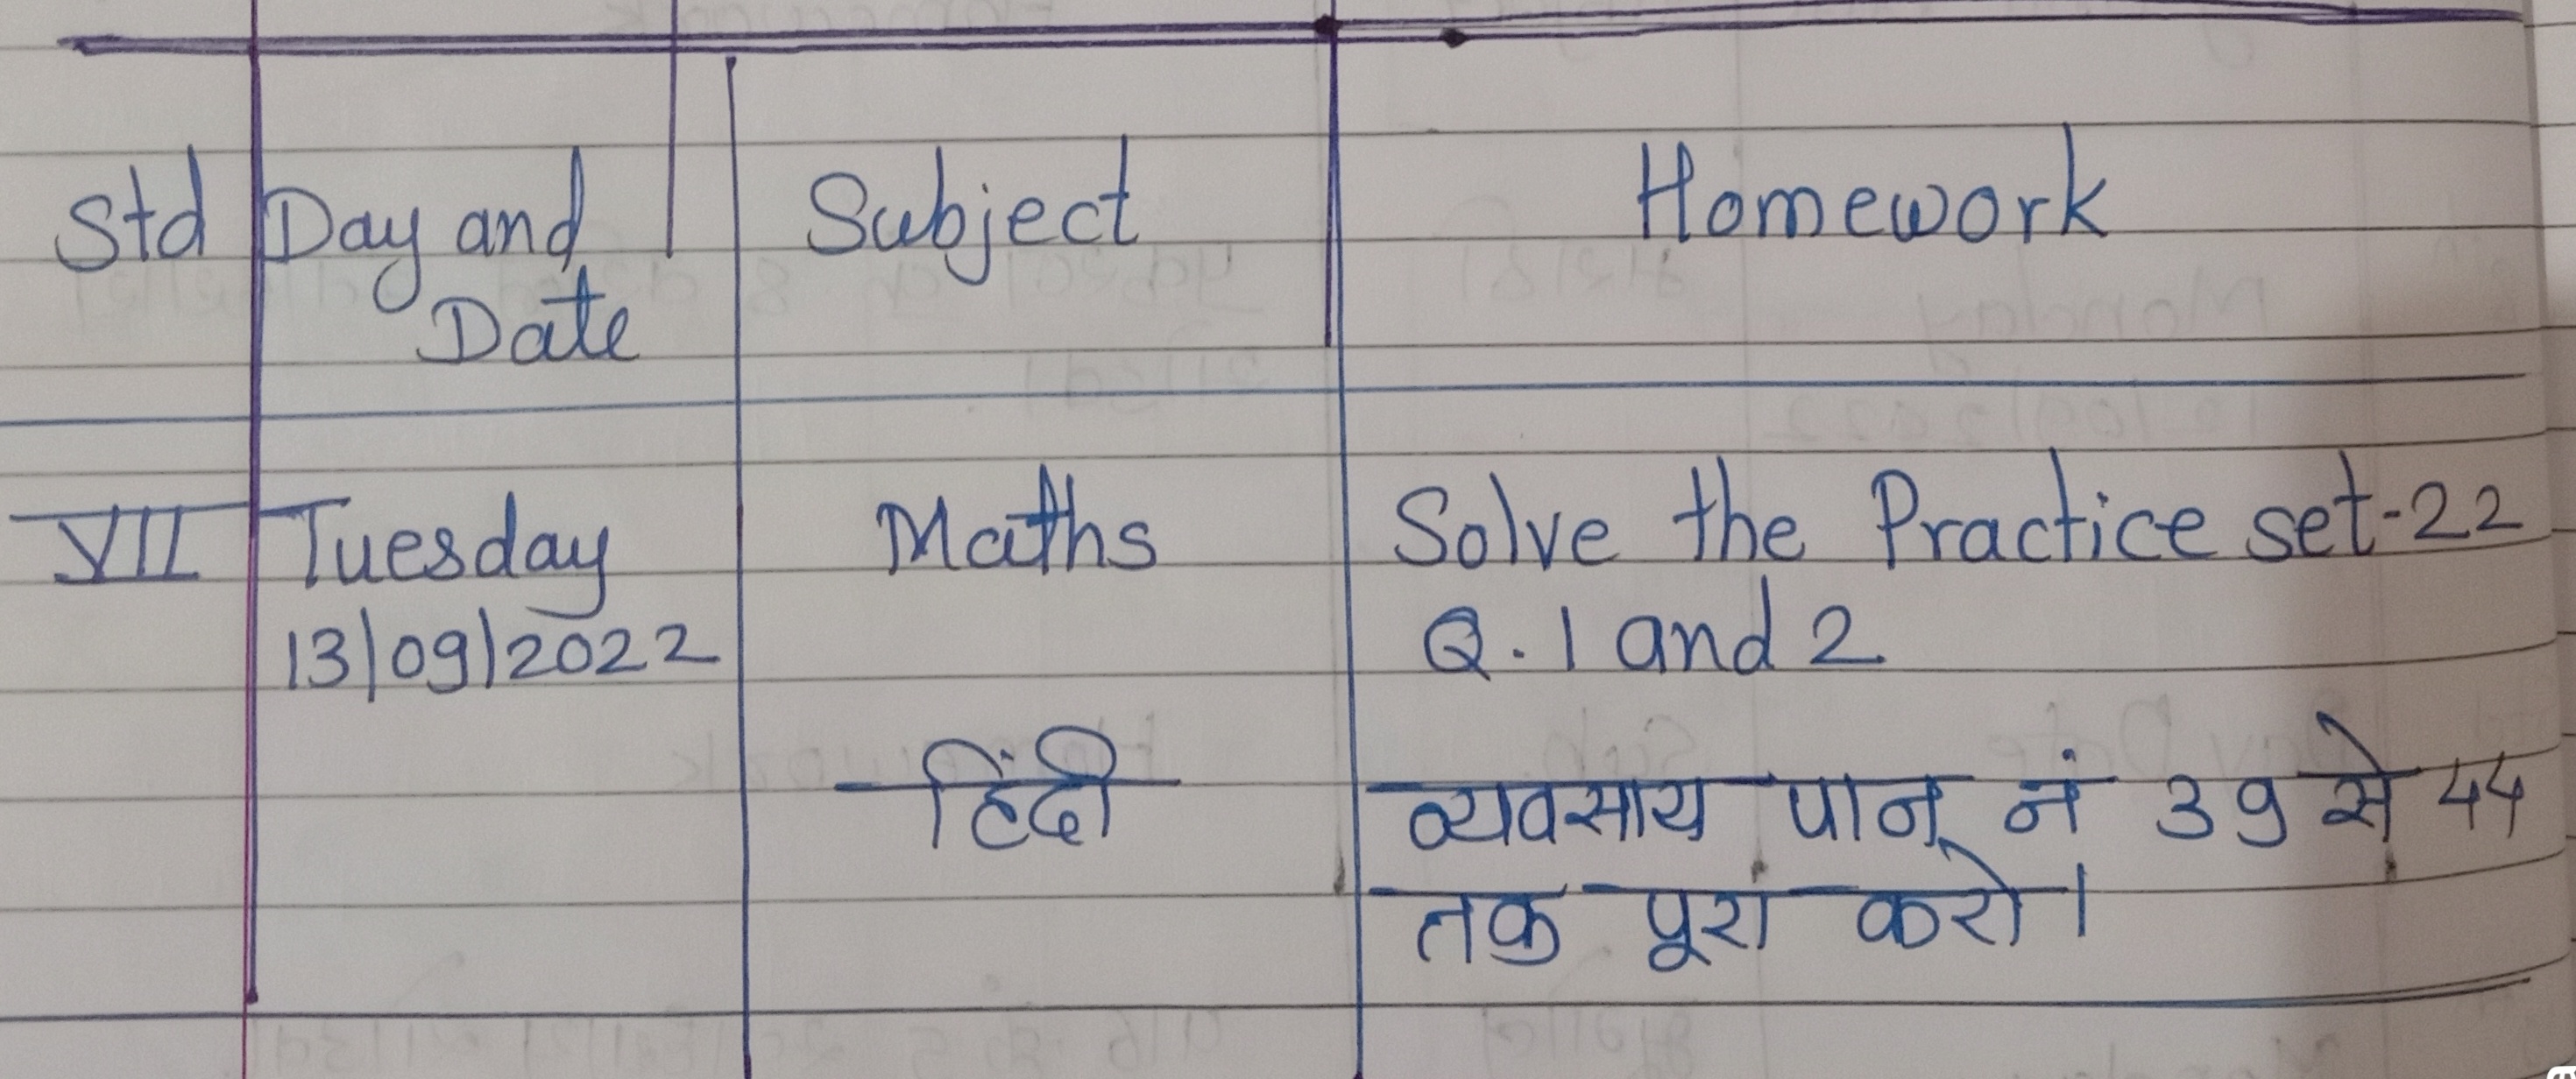 Std Day and Subject Homework
Date
VII Tuesday Maths Solve the Practice set-22
13/09/2022 Q. 1 and 2
हिंदी व्यवसाय पान नं 39 से 44
तक पूरा करो।